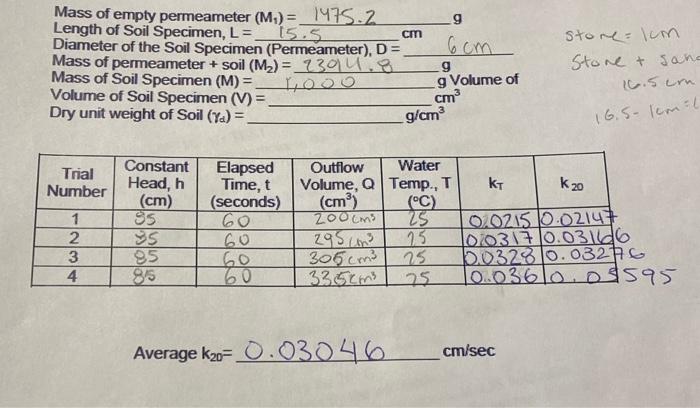 Mass of empty permeameter (M₁) = 1475.2 g
Length of Soil Specimen, L = 15.5 cm
stone = 1cm
Diameter of the Soil Specimen (Permeameter), D = 6 cm
Mass of permeameter + soil (M₂) = g
Stone + sand
Mass of Soil Specimen (M) = 1,000 g Volume of
16.5 cm
Volume of Soil Specimen (V) = cm³
16.5 - 1cm =
Dry unit weight of Soil (γd) = g/cm³
Trial Number Constant Head, h (cm) Elapsed Time, t (seconds) Outflow Volume, Q (cm³) Water Temp., T (°C) kT k20
1 85 60 200 cm³ 25 0.0215 0.02147
2 85 60 295 cm³ 25 0.0317 0.03166
3 85 60 305 cm³ 25 0.0328 0.03276
4 85 60 335 cm³ 25 0.036 0.03595
Average k20= 0.03046 cm/sec